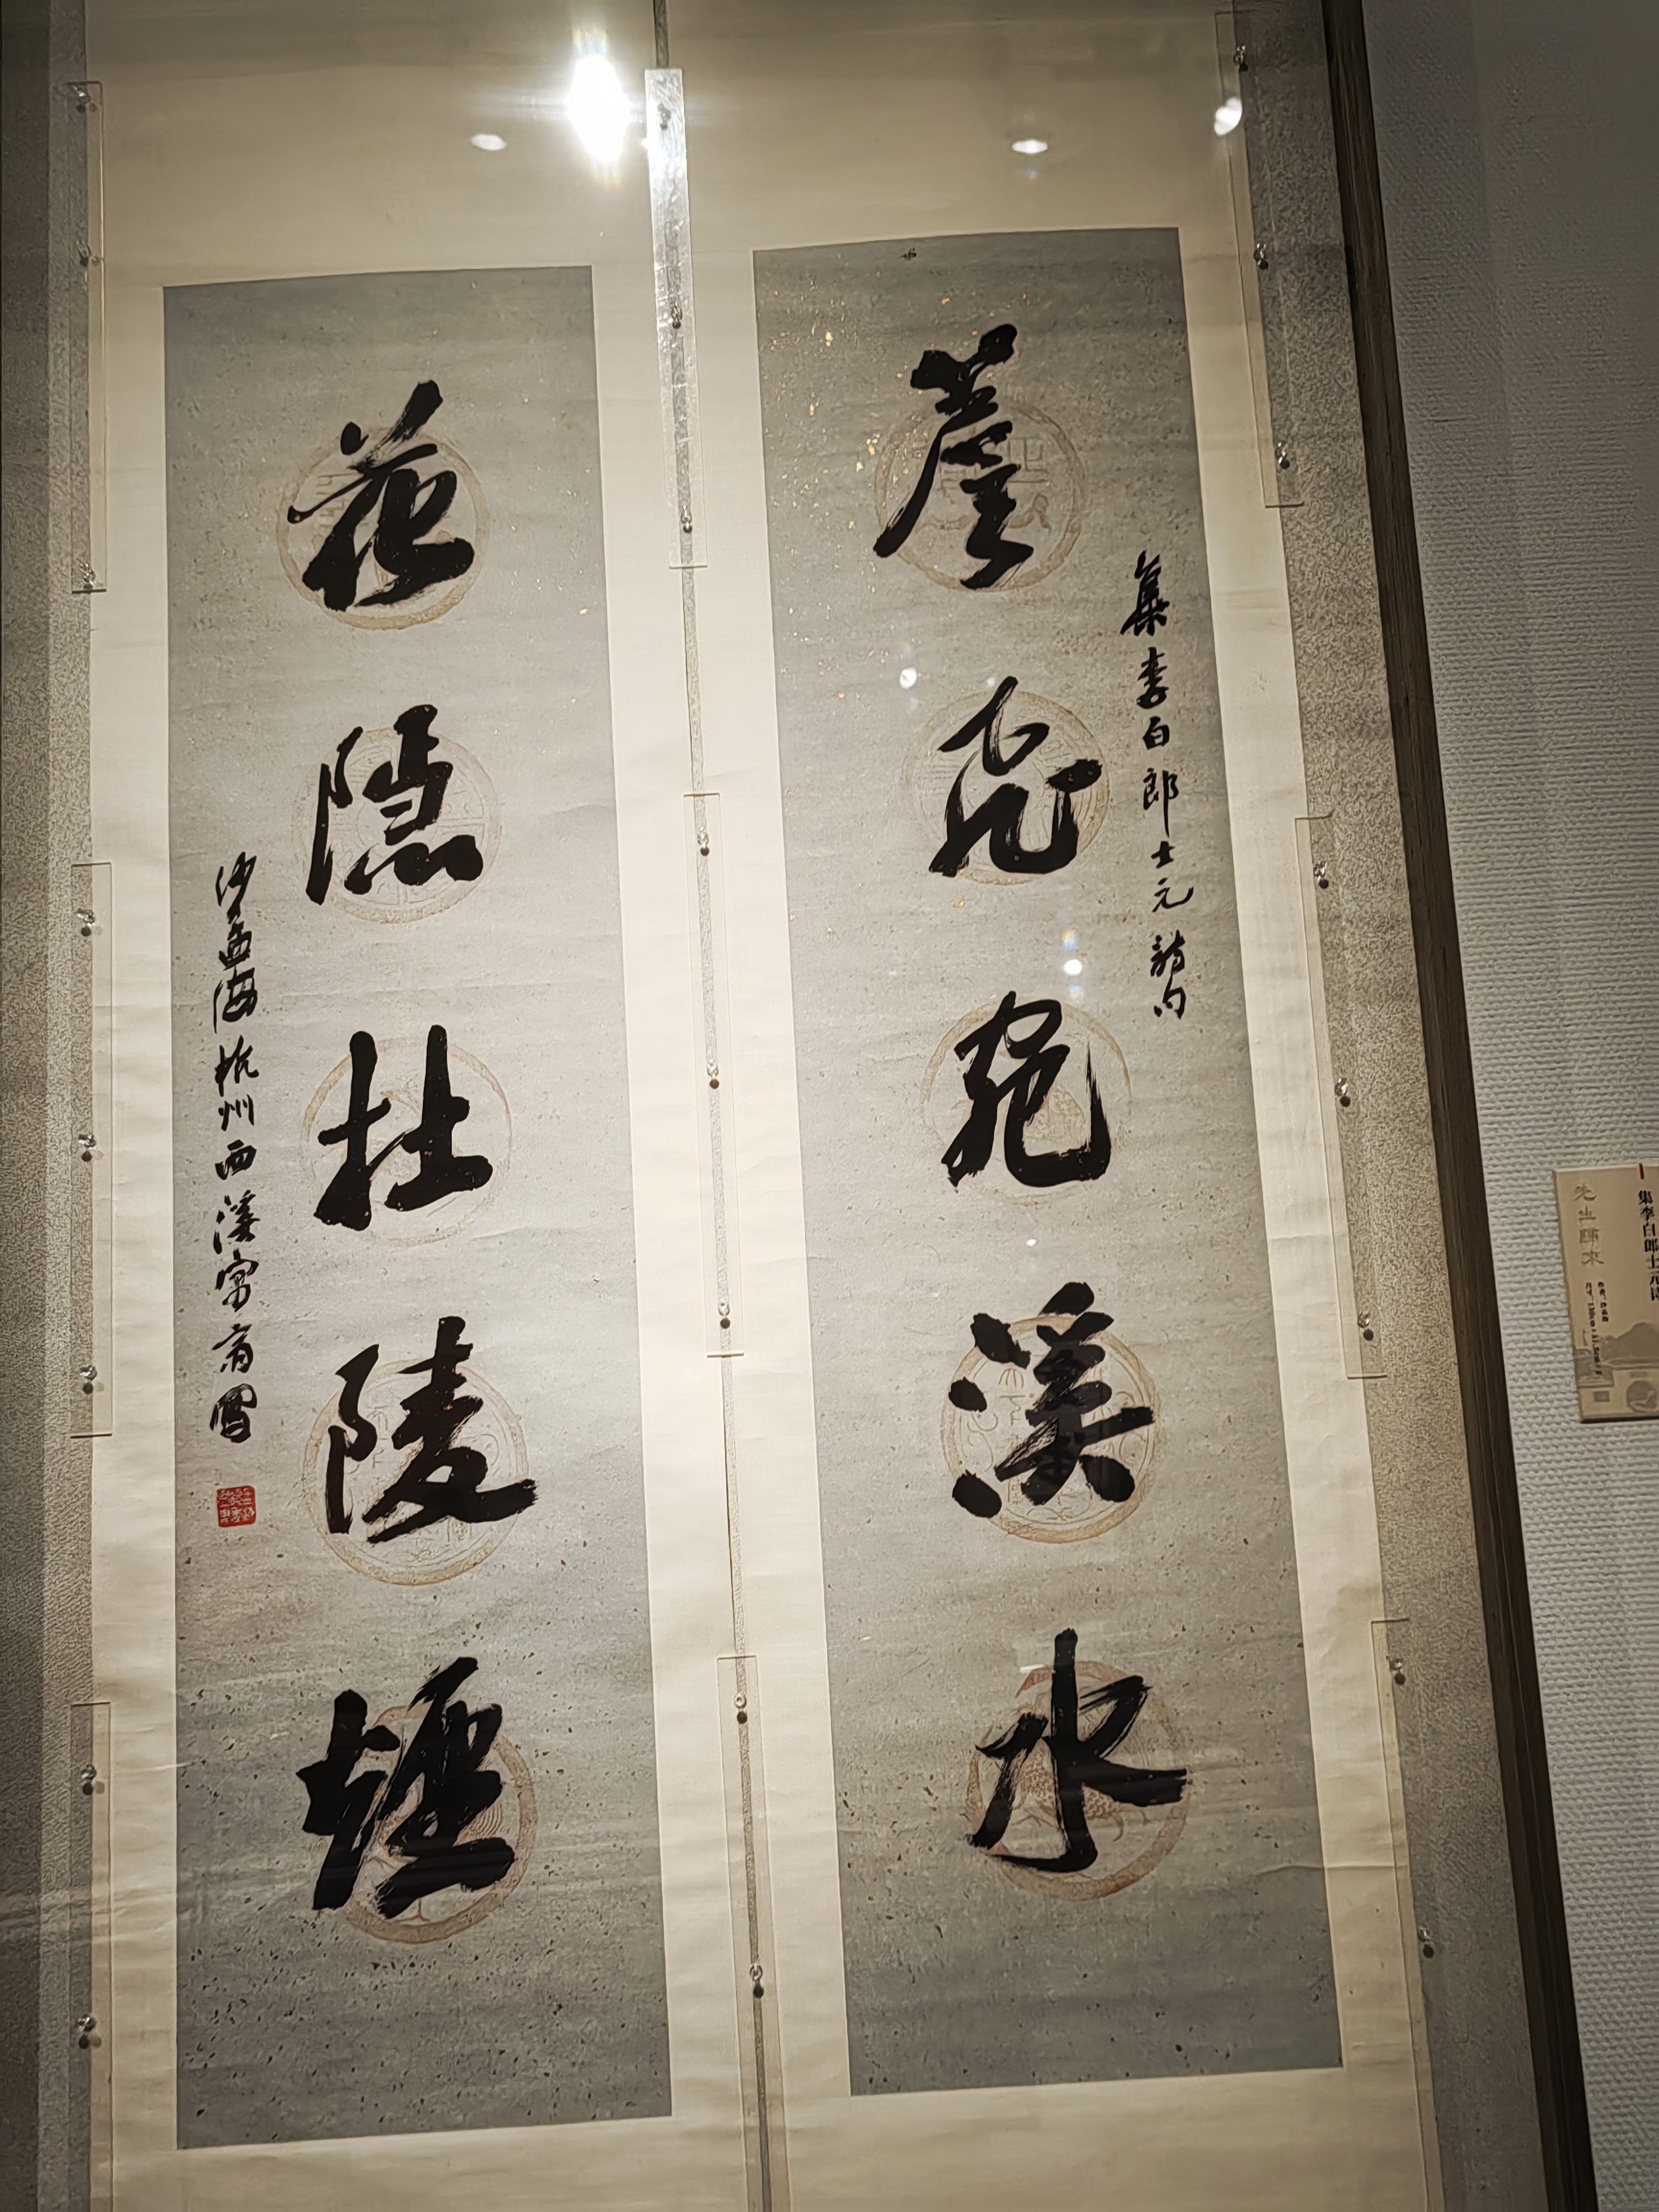 集李白郎士元詩句
簷飛宛溪水
花隱杜陵煙
沙孟海杭州西溪寓齋
先生歸來
集李白郎士元